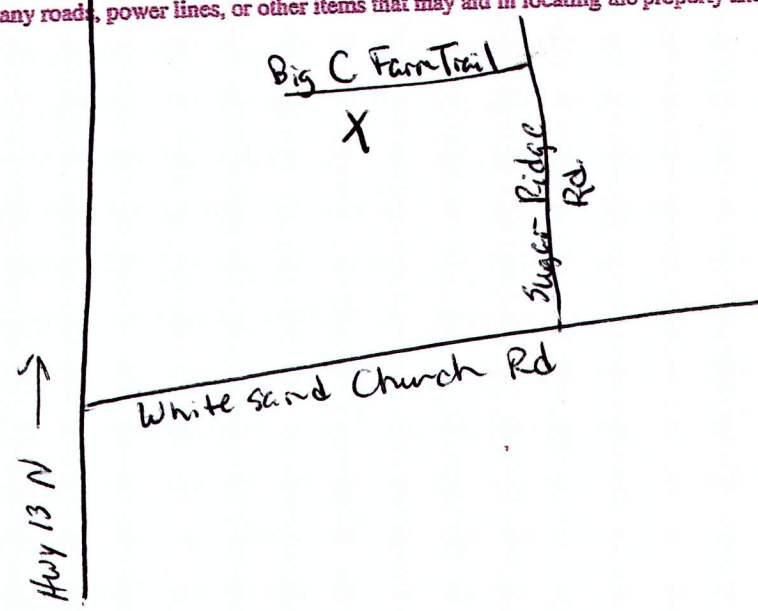 any roads, power lines, or other items that may aid in locating the property and
Big C Farm Trail
X
Sugar Ridge
Rd.
White sand Church Rd
Hwy 13 N